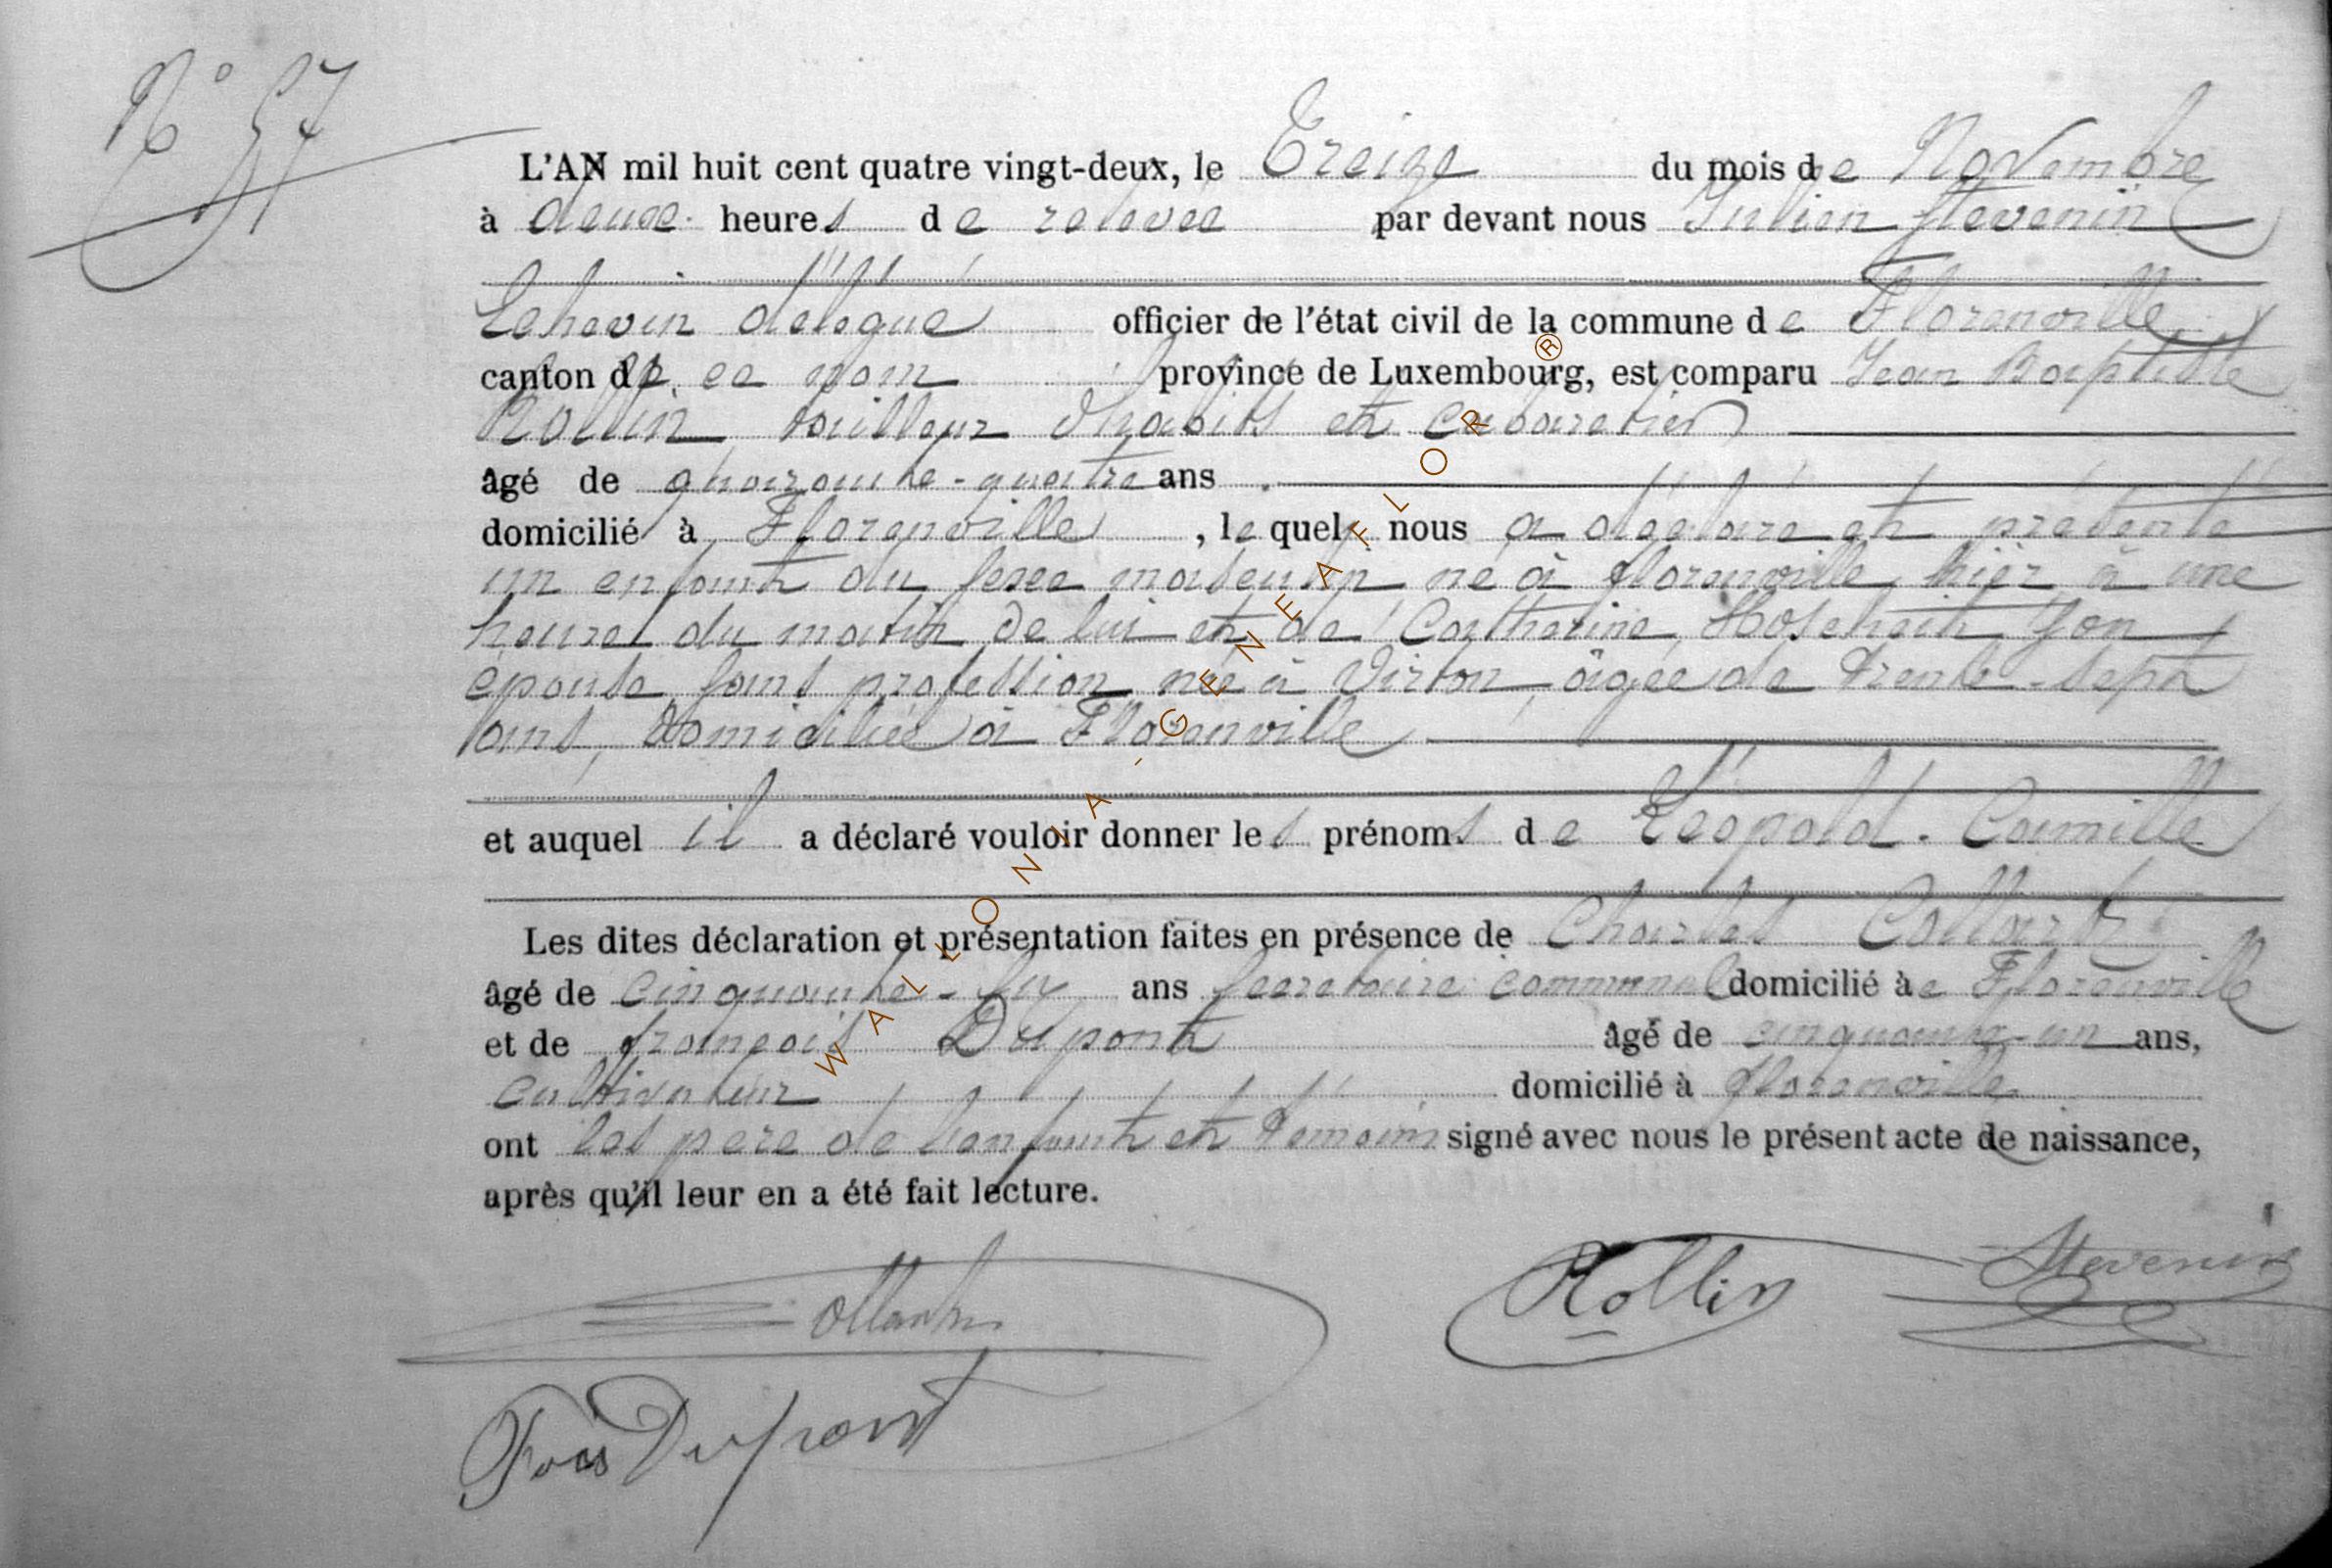 N° 57
L'AN mil huit cent quatre vingt-deux, le Treize du mois de Novembre
à deux heures de relevée par devant nous Julien Stevenin
Echevin délégué officier de l'état civil de la commune de Florenville
canton de ce nom province de Luxembourg, est comparu Jean Baptiste
Rollin, tailleur d'habits et cabaretier
âgé de quarante-quatre ans
domicilié à Florenville, lequel nous a déclaré et présenté
un enfant du sexe masculin né à florenville, hier à une
heure du matin de lui et de Catherine son
épouse sans profession née à Virton, âgée de trente-sept
ans, domiciliée à Florenville
et auquel il a déclaré vouloir donner les prénoms de Léopold-Camille
Les dites déclaration et présentation faites en présence de Charles Collart
âgé de cinquante- ans secretaire communal domicilié à Florenville
et de françois Dupont âgé de cinquante-un ans,
cultivateur domicilié à florenville
ont les père de l'enfant et témoins signé avec nous le présent acte de naissance,
après qu'il leur en a été fait lecture.
Collart Rollin Stevenin
Fois Dupont
WALLONIA-GENEAFLOR®